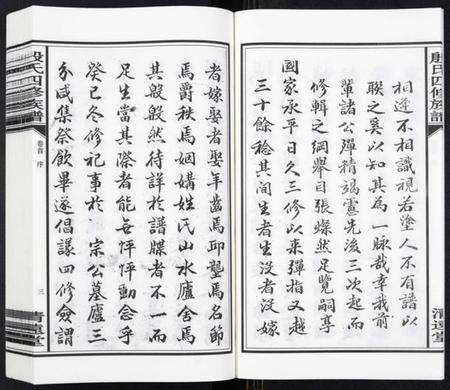 殷氏四修族譜
相逢不相識視若塗人不有譜以
聯之奚以知其為一脉哉幸我前
輩諸公殫精竭慮先後三次起而
修輯之綱舉目張燦然足覽嗣享
國家承平日久三修以來彈指又越
三十餘稔其间生者生没者没嫁
清遠堂
殷氏四修族譜
卷首 序
三
清遠堂
者嫁娶者娶年齒焉邱壟焉名節
焉爵秩焉姻媾焉姓氏山水廬舍焉
其般般然待詳於譜牒者不一而
足生當其際者能無怦怦動念乎
癸巳冬修祀事於 宗公墓廬三
分咸集祭飲畢遂倡議四修僉謂